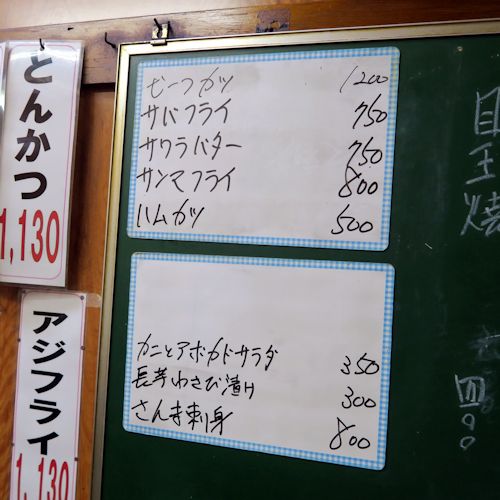 とんかつ
1,130
アジフライ
1,130
ビーフカツ 1200
サバフライ 750
サワラバター 750
サンマフライ 800
ハムカツ 500
カニとアボカドサラダ 350
長芋わさび漬け 300
さんま刺身 800
目玉焼
四〇〇